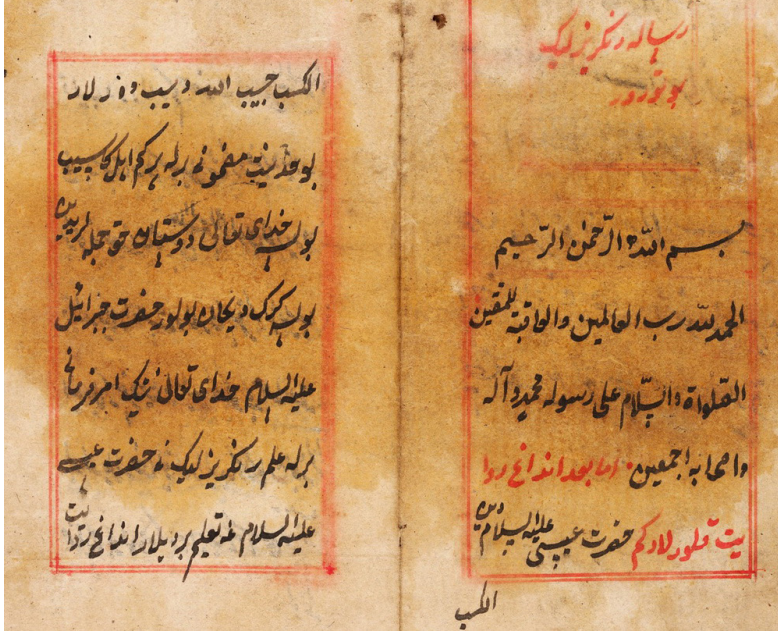 رساله رنكريز ليك
بو تورور
بسم الله الرحمن الرحيم
الحمد لله رب العالمين والعاقبة للمتقين
الصلواة والسلام على رسوله محمد و آله
واصحابه اجمعين اما بعد انداغ روا
يت قلورلاركم حضرت عيسى عليه السلام دين
الكسب
الكسب حبيب الله ديب دورلار
بو حديث مضمونه برله هركم اهل كاسب
بولسه خداى تعالى دوستان
بولسه كرك ديكان بولور حضرت جبرائيل
عليه السلام خداى تعالى نينك امر فرمانى
برله علم رنكريز ليك نه حضرت عيسى
عليه السلام غه تعليم برديلار انداغ روا
يت